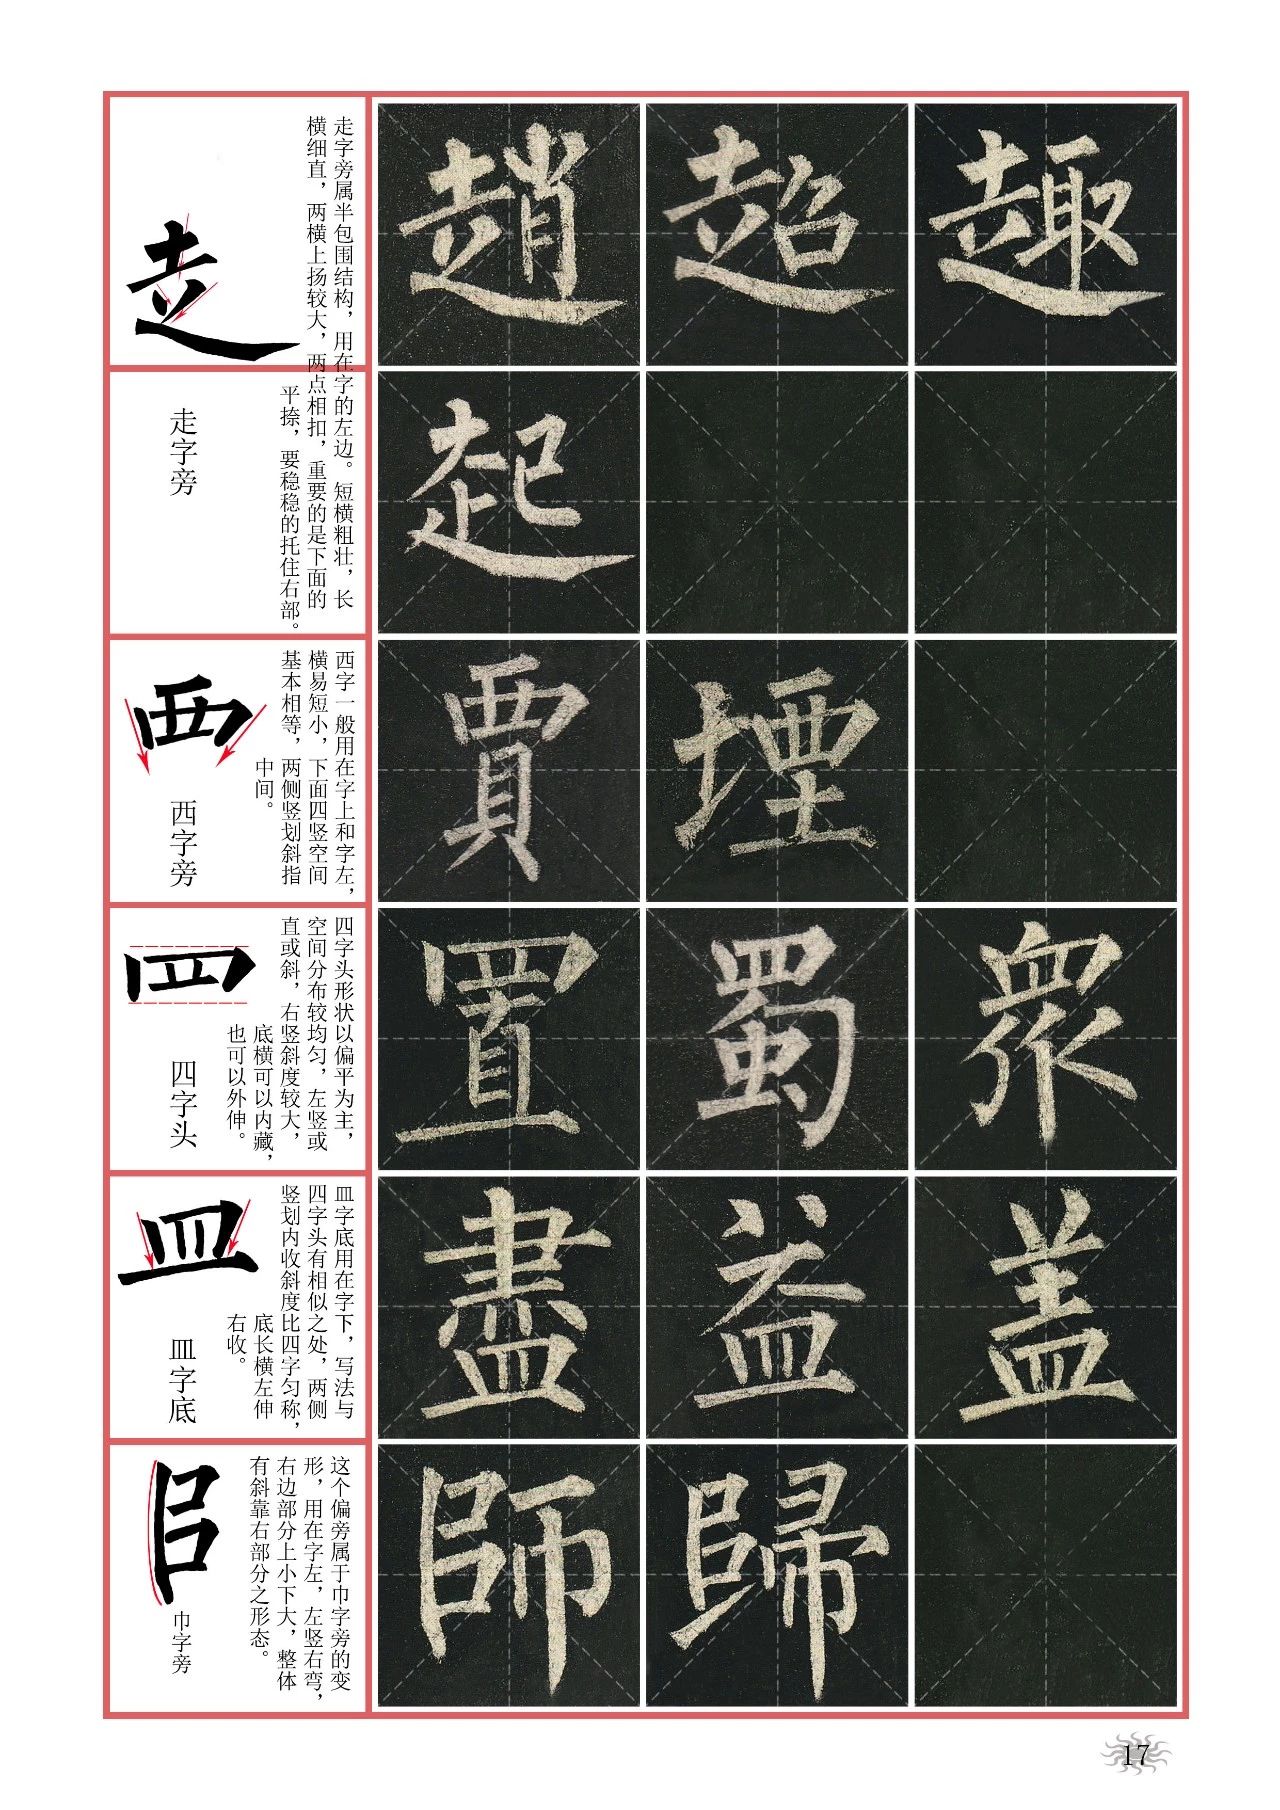 走字旁属半包围结构，用在字的左边。短横粗壮，长
横细直，两横上扬较大，两点相扣，重要的是下面的
平捺，要稳稳的托住右部。
走字旁
趙 超 趣
起
西字一般用在字上和字左，
横易短小，下面四竖空间
基本相等，两侧竖划斜指
中间。
西
西字旁
賈 堙
四字头形状以偏平为主，
空间分布较均匀，左竖或
直或斜，右竖斜度较大，
底横可以内藏，
也可以外伸。
四字头
置 蜀 眾
皿字底用在字下，写法与
四字头有相似之处，两侧
竖划内收斜度比四字匀称，
底长横左伸
右收。
皿
皿字底
盡 益 盖
这个偏旁属于巾字旁的变
形，用在字左，左竖右弯，
右边部分上小下大，整体
有斜靠右部分之形态。
巾字旁
師 歸
17